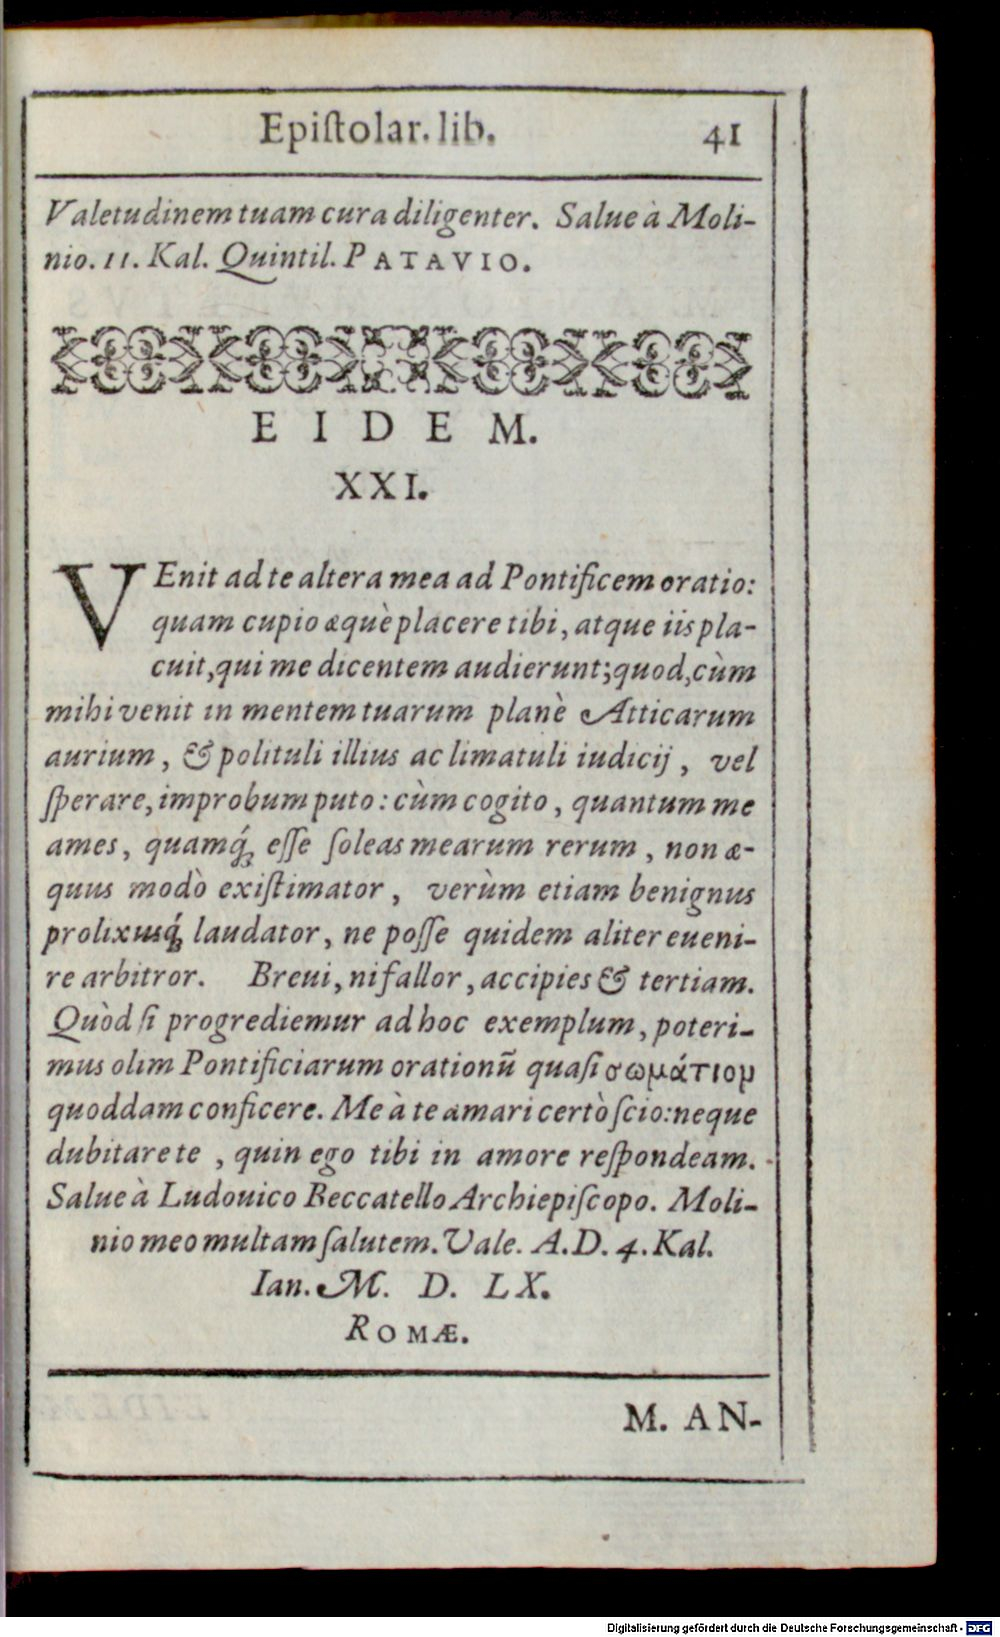 Epiſtolar. lib. 41
Valetudinem tuam cura diligenter. Salue à Moli-
nio. 11. Kal. Quintil. PATAVIO.
EIDEM.
XXI.
VEnit ad te altera mea ad Pontificem oratio:
quam cupio æquè placere tibi, atque iis pla-
cuit, qui me dicentem audierunt; quod, cùm
mihi venit in mentem tuarum planè Atticarum
aurium, & polituli illius ac limatuli iudicij, vel
ſperare, improbum puto: cùm cogito, quantum me
ames, quamq́; eſſe ſoleas mearum rerum, non æ-
quus modò exiſtimator, verùm etiam benignus
prolixusq́; laudator, ne poſſe quidem aliter eueni-
re arbitror. Breui, ni fallor, accipies & tertiam.
Quòd ſi progrediemur ad hoc exemplum, poteri-
mus olim Pontificiarum orationũ quaſi σωμάτιον
quoddam conficere. Me à te amari certò ſcio: neque
dubitare te, quin ego tibi in amore reſpondeam.
Salue à Ludouico Beccatello Archiepiſcopo. Moli-
nio meo multam ſalutem. Vale. A.D. 4. Kal.
Ian. M. D. LX.
ROMÆ.
M. AN-
Digitalisierung gefördert durch die Deutsche Forschungsgemeinschaft - DFG